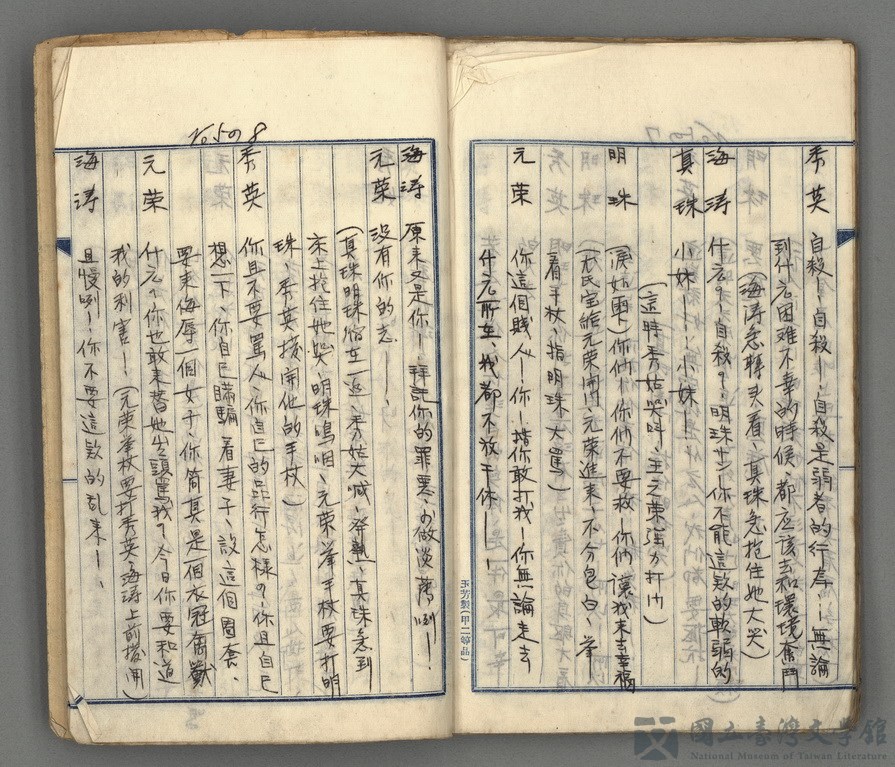 No507
秀英 自殺！、自殺！、自殺是弱者的行為！、無論
到什么困难不幸的時候、都应該去和環境奮鬥
(海涛急轉头看、真珠急抱住她大哭)
海涛 什么？！、自殺？、明珠サン！你不能這款的軟弱的
真珠 小妹！、！、小妹！
(這時秀姑哭叫、王元荣強力打门)
明珠 (淚如雨下)你们！你们不要救！你们讓我末去幸福
(尤氏宝給元荣開门、元荣進来、不分皂白、举
着手杖、指明珠大罵)
元荣 你這個賤人！你！措你敢打我！你無論走去
什么所在、我都不放干休！！
玉芳製(甲二蜻品)
No508
海涛 原来又是你！、拜託你的罪惡、お做淡薄咧！、
元荣 没有你的志！、
(真珠明珠縮在一边、秀姑大喊、發熱、真珠急到
床上抱住她哭、明珠嗚咽、元荣举手杖要打明
珠、秀英接開他的手杖)
秀英 你且不要罵人、你自己的品行怎樣？、你且自己
想一下、你自己瞞騙着妻子、設這個圈套、
要来侮辱一個女子、你简真是個衣冠禽獸
元荣 什么？你也敢来替她出頭罵我？今日你要知道
我的利害！、(元荣举杖要打秀英、海涛上前接開)
海涛 且慢咧！、你不要這款的乱来！、
國立臺灣文學館
National Museum of Taiwan Literature